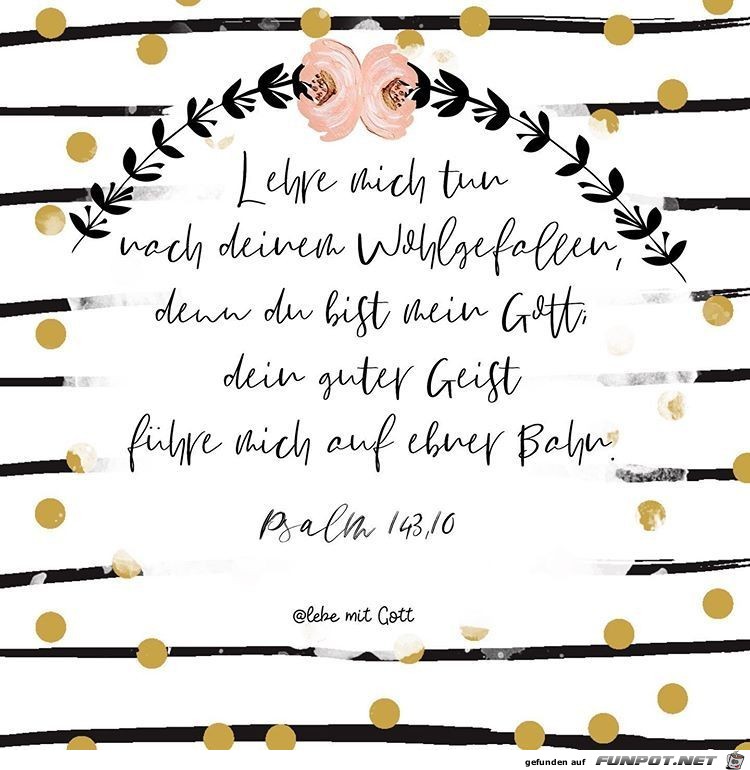 Lehre mich tun
nach deinem Wohlgefallen,
denn du bist mein Gott;
dein guter Geist
führe mich auf ebner Bahn.
Psalm 143,10
@lebe mit Gott
gefunden auf FUNPOT.NET